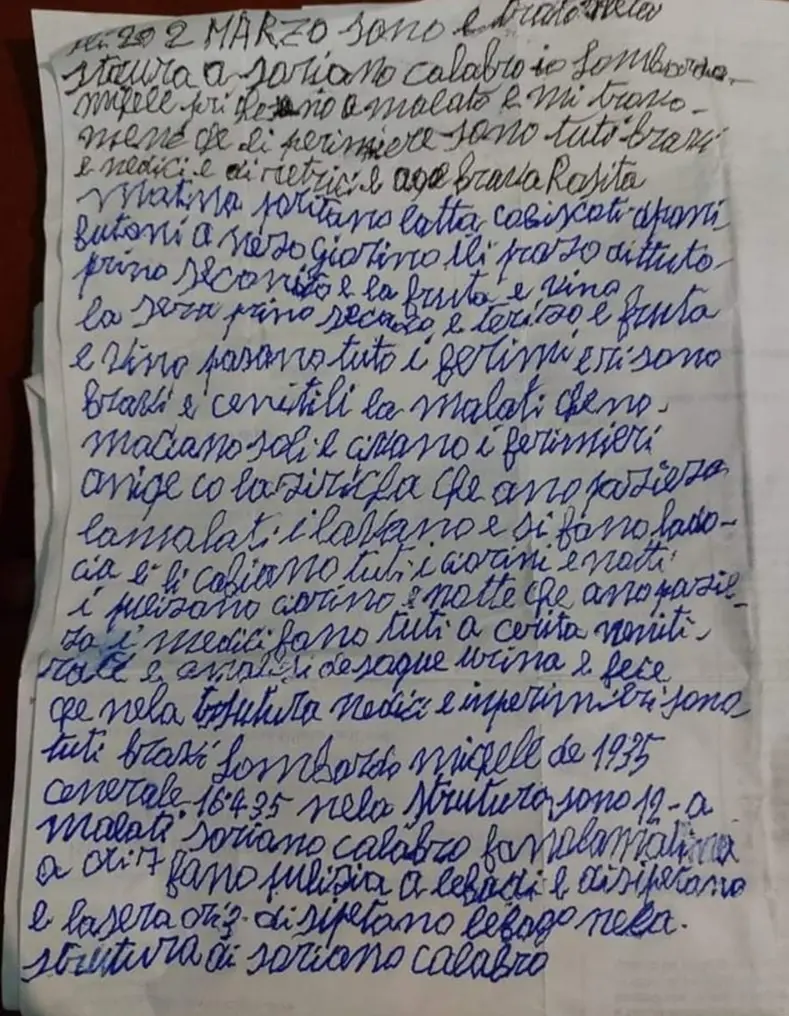 2 MARZO sono e trato nela
staura a soriano calabro io Lombardo
migele pri gesono a malato e mi trovo
mene ge li perimiere sono tuti bravi
e medici e diretrici e age brava Rosita
matina portano latta cobiscoti e pani
butoni a mezo giorino lli prazo dittuto
primo secondo e la fruta e vino
la sera primo secondo e terizo e fruta
e vino pasano tuto i ferimieri sono
bravi e cenitili la malati che no
maciano soli e civano i ferimieri
anige co la ziricha che ano pazieza
lamalati i lavano e si fano lado-
cia e li cabiano tuti i ciorini e notti
i pulizano ciorino e notte che ano pazie-
za i medici fano tuti a cerita meniti
rate e analisi de sague urina e fece
ge nela trutura medici e inperimieri sono
tuti bravi Lombardo migele de 1935
cenerale 16 4 35 nela strutura sono 12 a
malati soriano calabro fano lamatina
a ori 7 fano pulizia a lebagi e disipetano
e lasera ori 3 disipetano lebago nela
strutura di soriano calabro